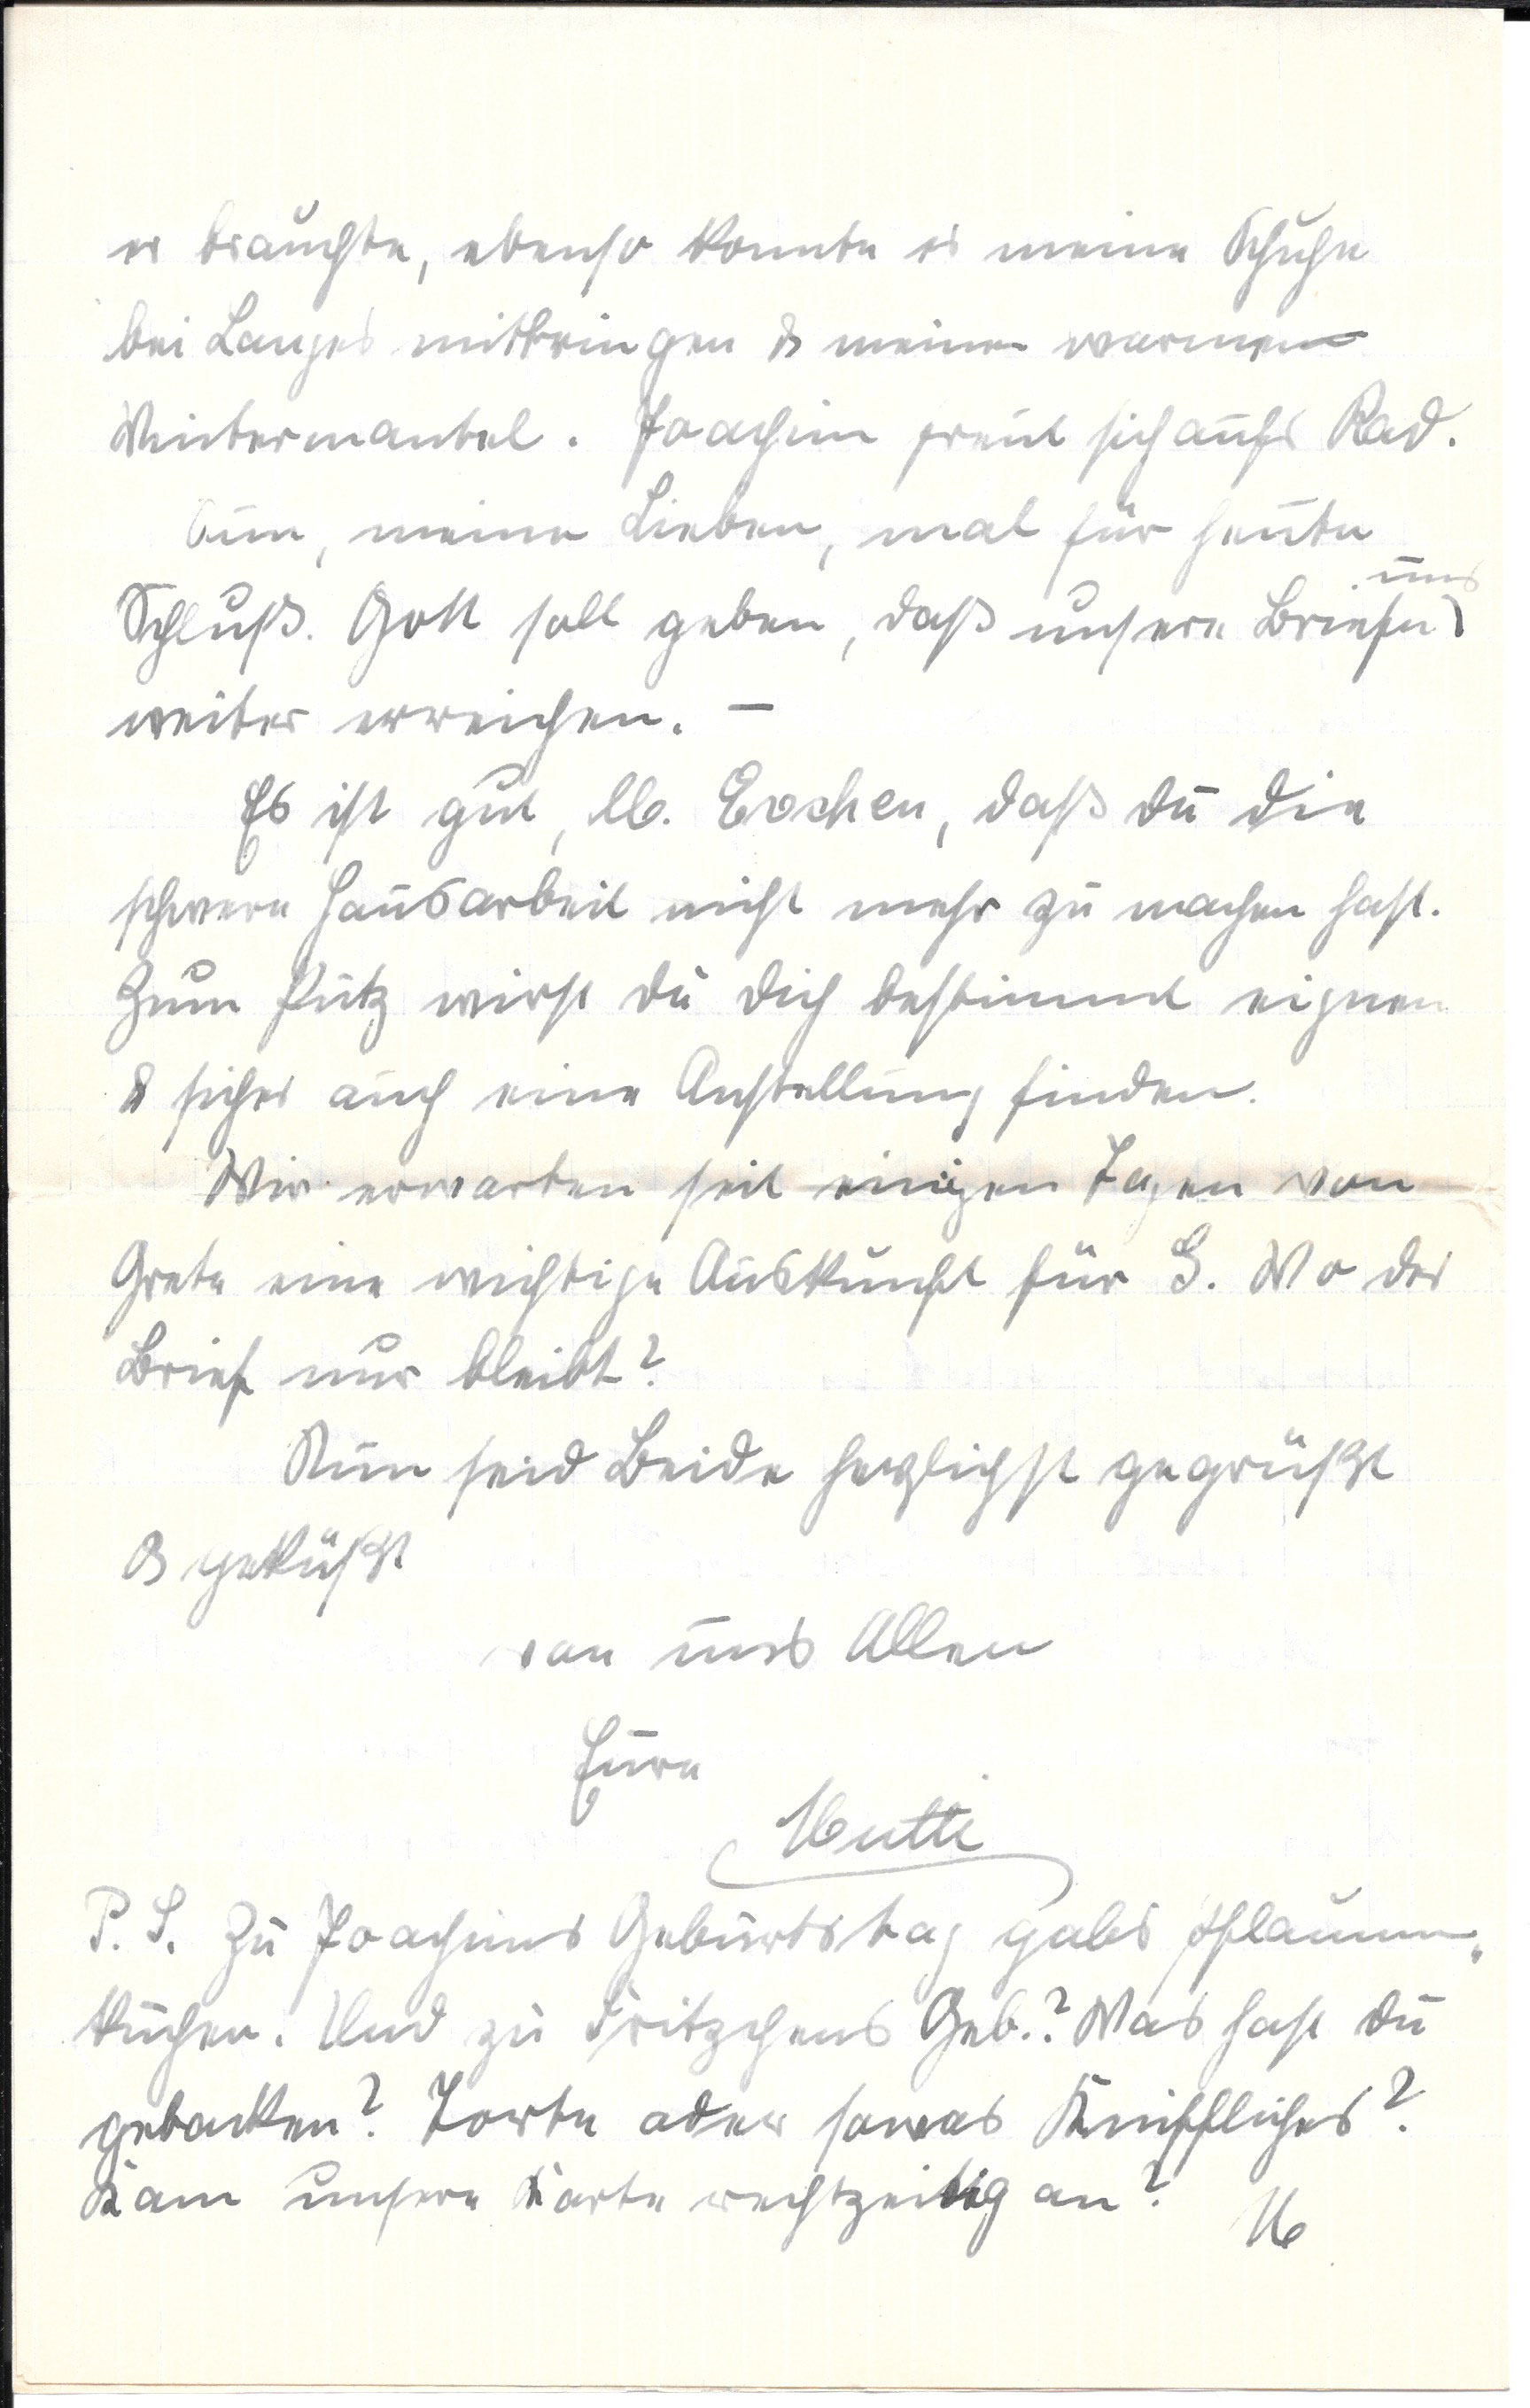 er brauchte, ebenso konnte er meine Schuhe
bei Langes mitbringen & meinen warmen
Wintermantel. Joachim freut sich aufs Rad.
Nun, meine Lieben, mal für heute
Schluß. Gott soll geben, daß unsere Briefe uns
weiter erreichen. —
Es ist gut, lb. Evchen, daß du die
schwere Hausarbeit nicht mehr zu machen hast.
Zum Putz wirst du dich bestimmt eignen
& sicher auch eine Anstellung finden.
Wir erwarten seit einigen Tagen von
Grete eine wichtige Auskunft für S. Wo der
Brief nur bleibt?
Nun seid Beide herzlichst gegrüßt
& geküßt
von uns Allen
Eure
Mutti
P.S. Zu Joachims Geburtstag gabs Pflaumen-
kuchen. Und zu Fritzchens Geb.? Was hast du
gebacken? Torte oder sowas Kniffliches?
Kam unsere Karte rechtzeitig an? M